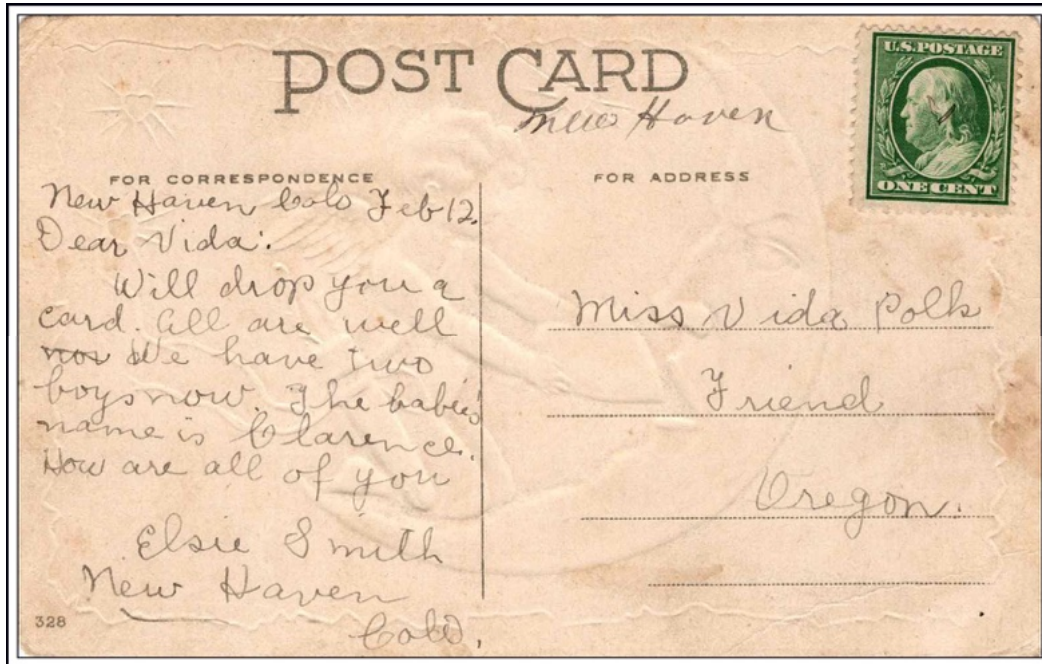 POST CARD
New Haven
U.S. POSTAGE
ONE CENT
FOR CORRESPONDENCE
New Haven Colo Feb 12.
Dear Vida:
Will drop you a
card. All are well
nos We have two
boys now. The babies
name is Clarence.
How are all of you
Elsie Smith
New Haven
Colo,
328
FOR ADDRESS
Miss Vida Polk
Friend
Oregon.